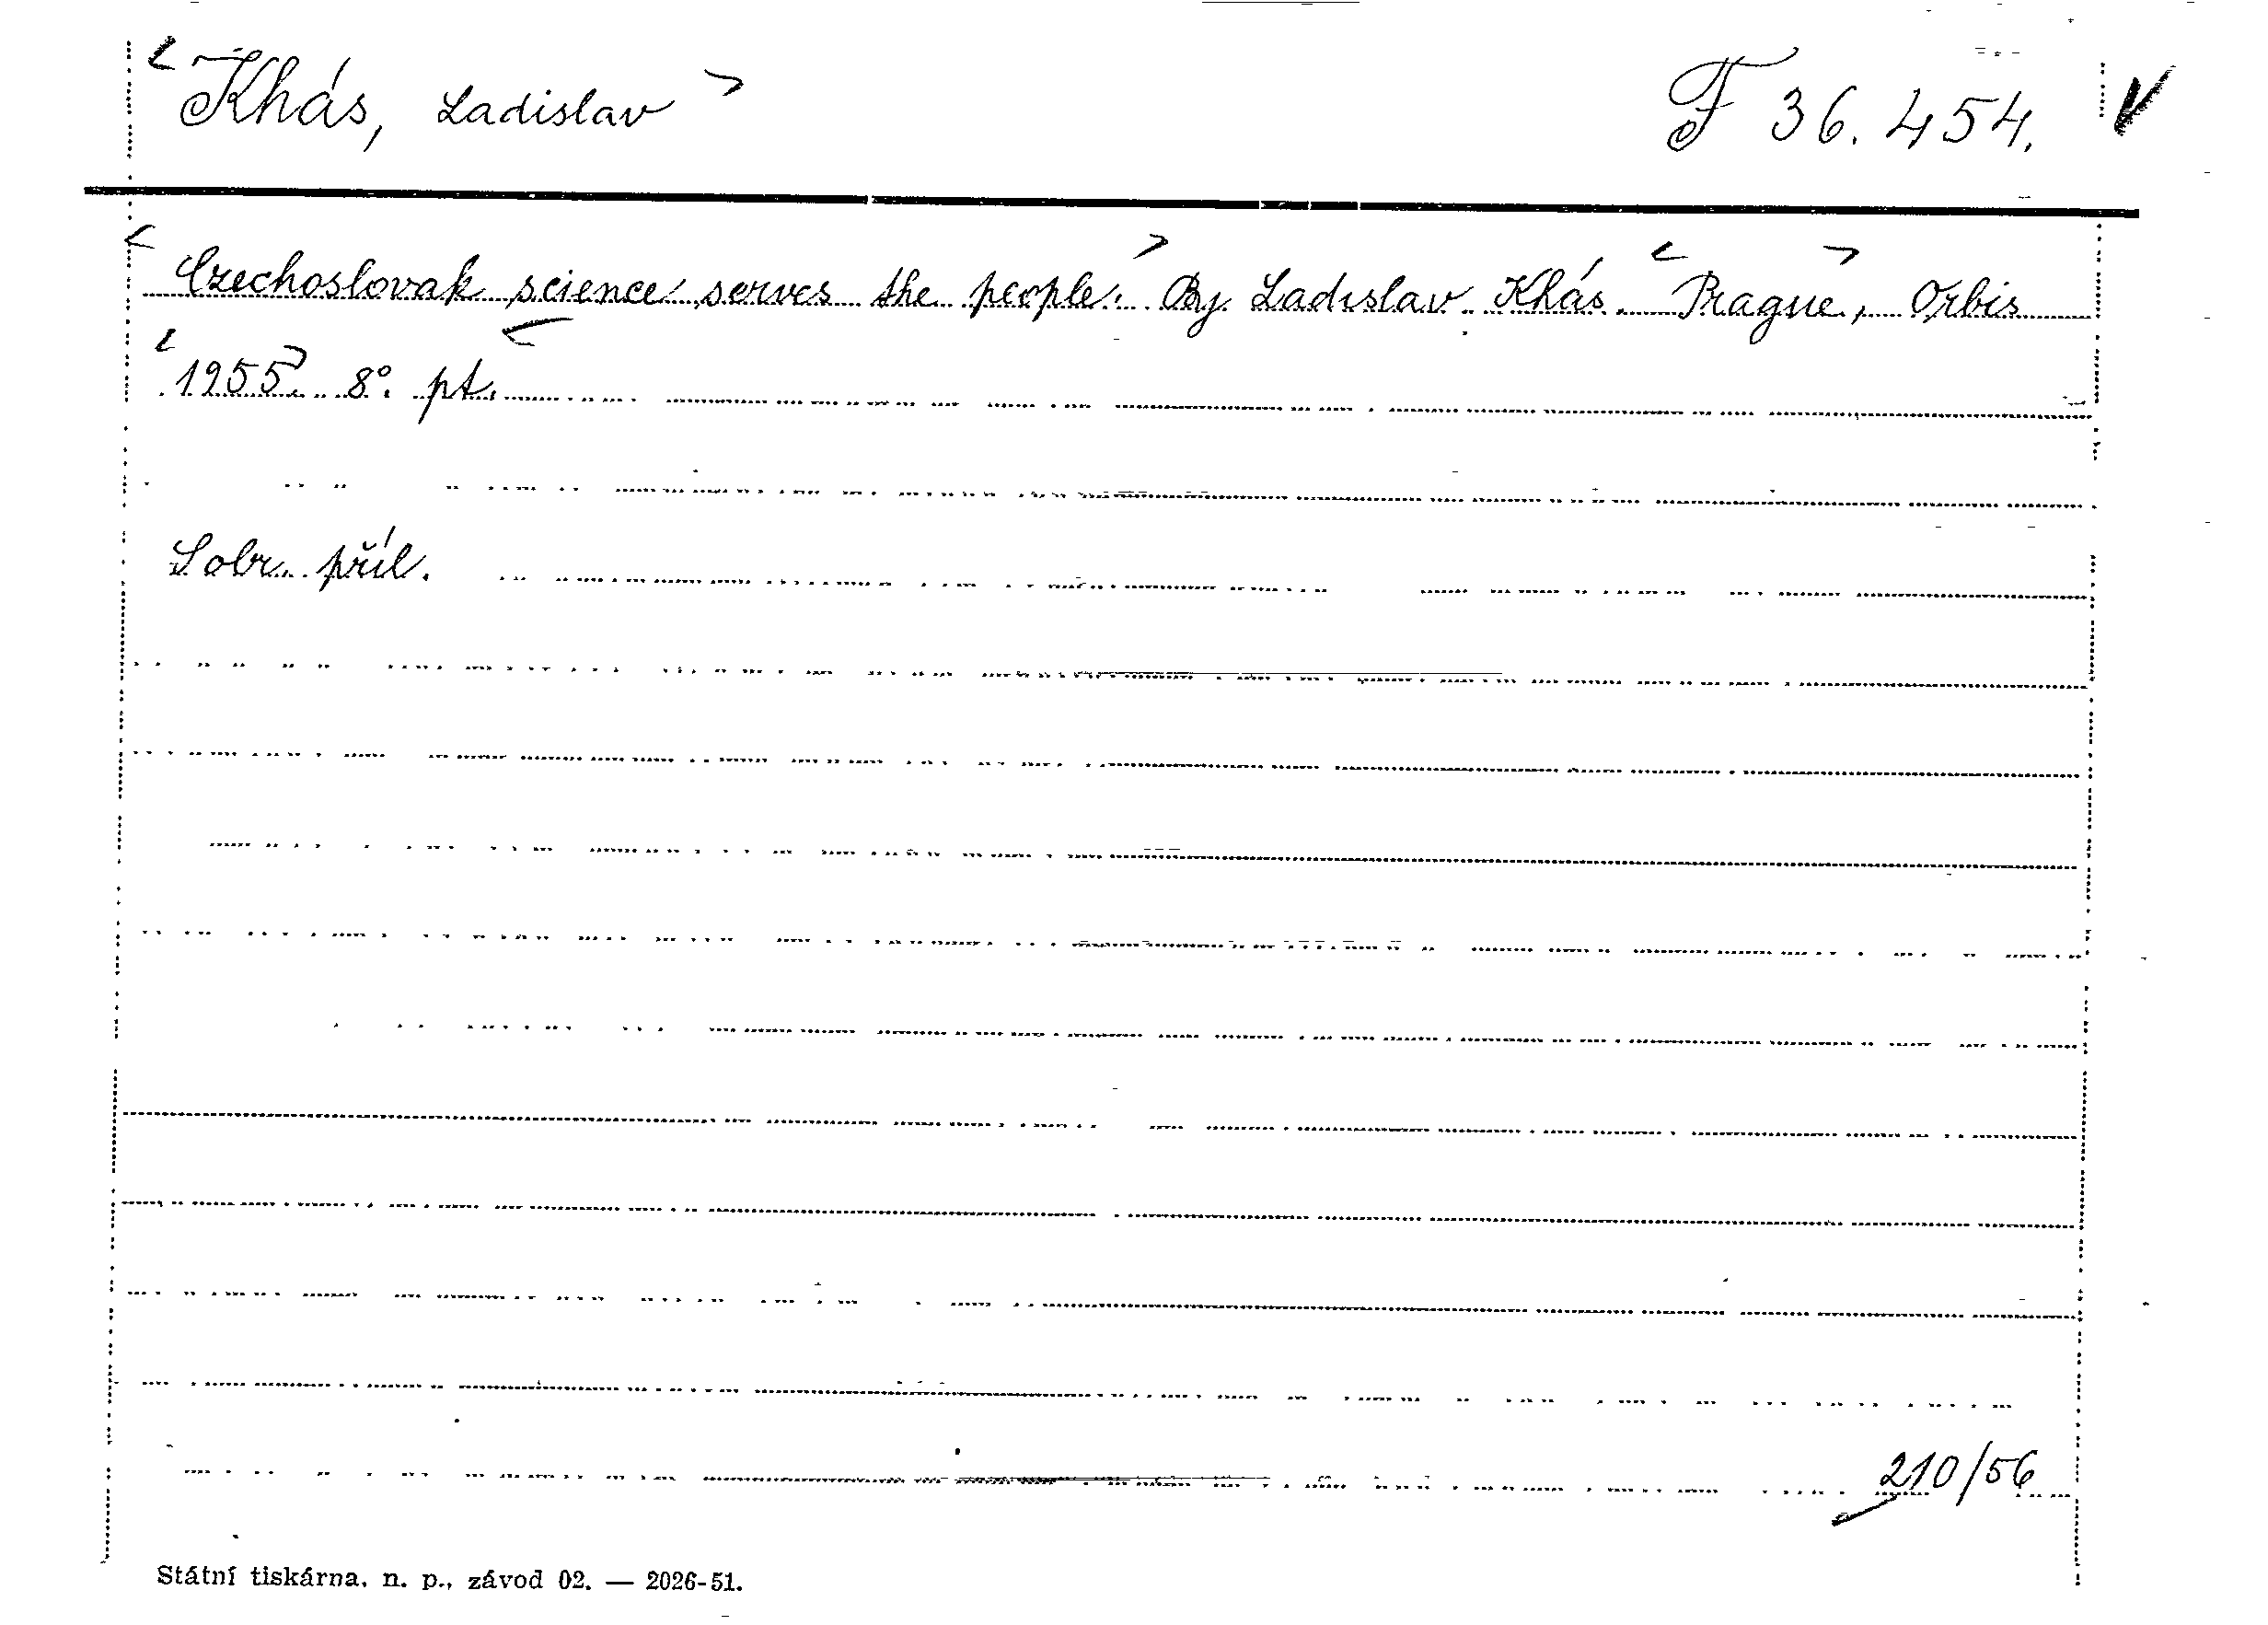 < Khás, Ladislav > F 36.454. V
< Czechoslovak science serves the people. > By Ladislav Khás. < Prague >, Orbis
< 1955 >. 8°. pt. <
Sobr. příl.
210/56
Státní tiskárna, n. p., závod 02. — 2026-51.